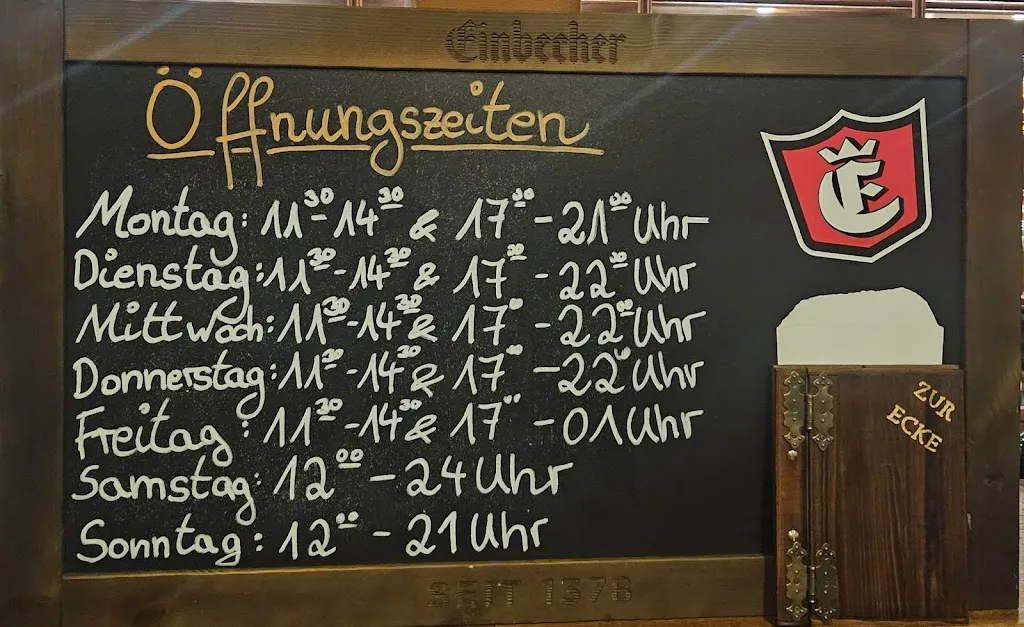 Einbecher
Öffnungszeiten
Montag: 11³⁰-14³⁰ & 17³⁰-21⁰⁰ Uhr
Dienstag: 11³⁰-14³⁰ & 17³⁰-22⁰⁰ Uhr
Mittwoch: 11³⁰-14³⁰ & 17⁰⁰-22⁰⁰ Uhr
Donnerstag: 11³⁰-14³⁰ & 17⁰⁰-22⁰⁰ Uhr
Freitag: 11³⁰-14³⁰ & 17⁰⁰-01 Uhr
Samstag: 12⁰⁰-24 Uhr
Sonntag: 12⁰⁰-21 Uhr
E
ZUR
ECKE
SEIT 1378